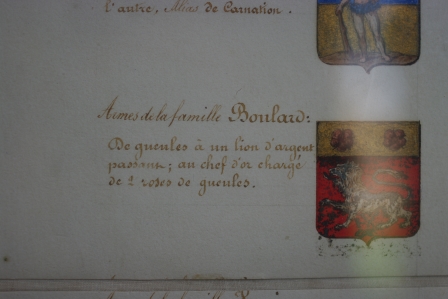 l'autre, Alias de Carnation.
Armes de la famille Boulard:
De gueules à un lion d'argent
passant; au chef d'or chargé
de 2 roses de gueules.